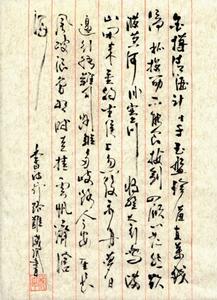 金樽清酒斗十千玉盤珍羞直萬錢
停杯投箸不能食拔劍四顧心茫然欲
渡黃河冰塞川將登太行雪滿
山閒來垂釣碧溪上忽復乘舟夢日
邊行路難行路難多歧路今安在長
風破浪會有時直掛雲帆濟滄
海
行路難